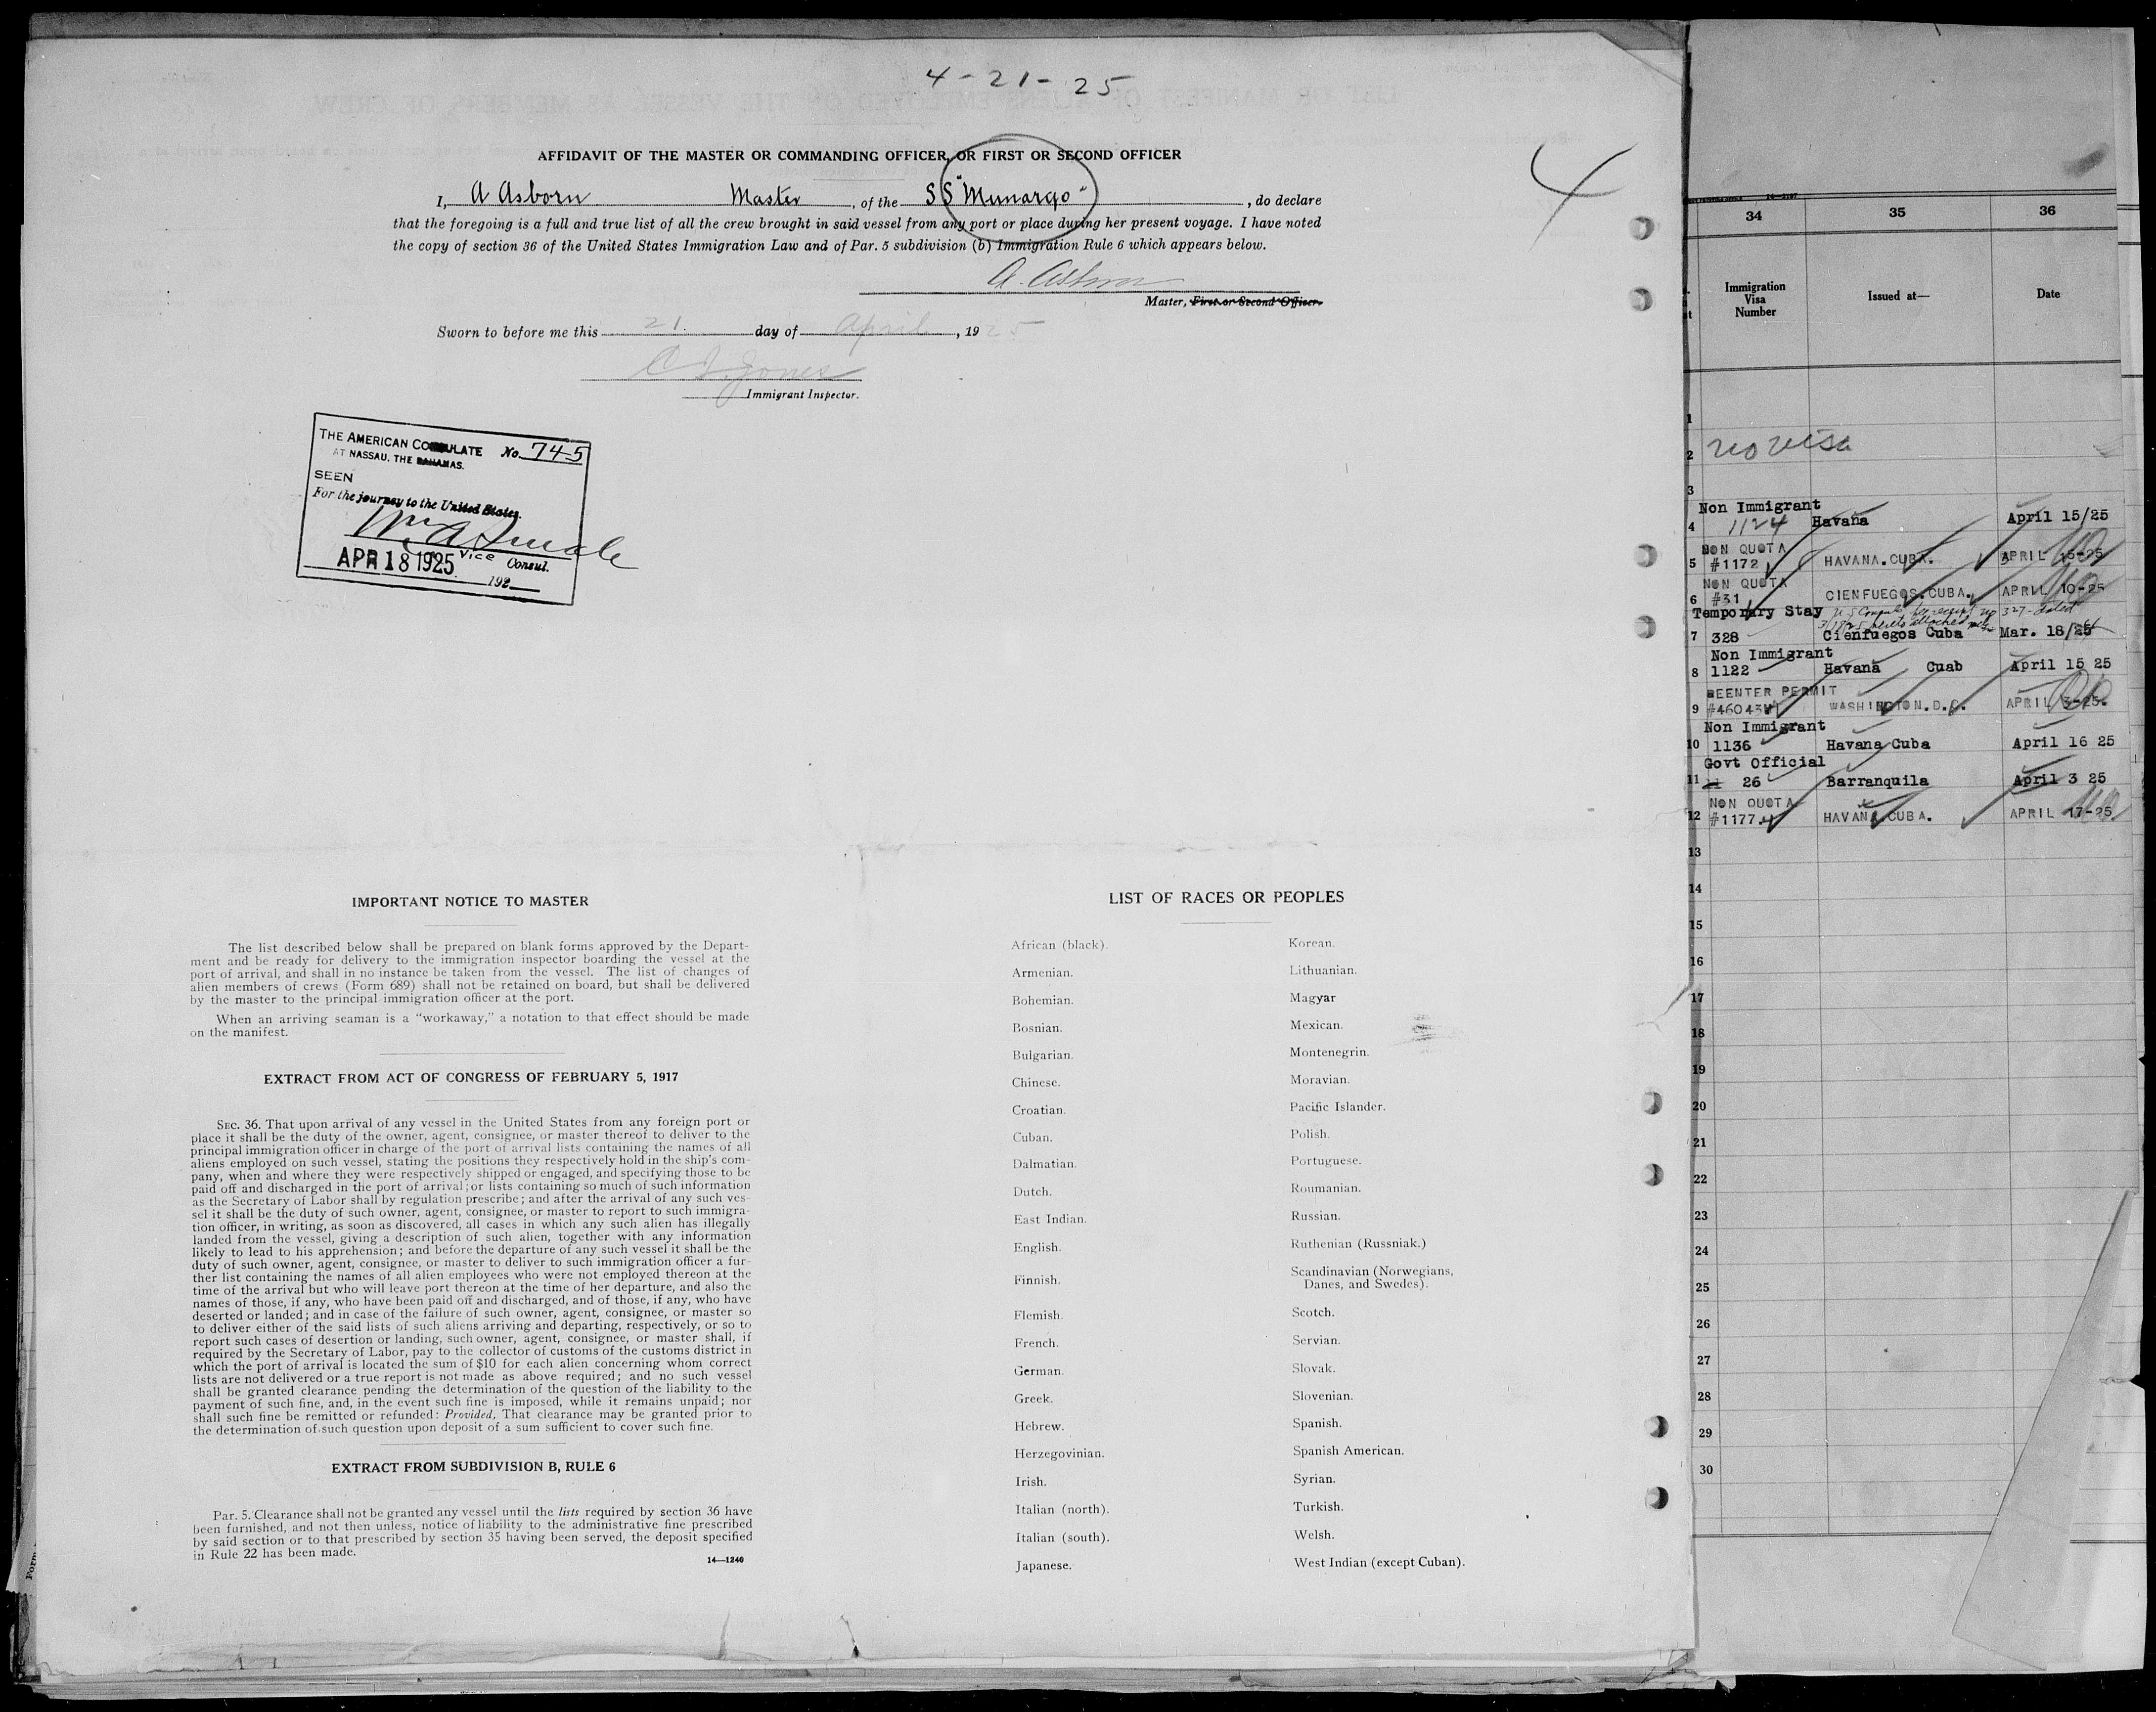 4-21-25
AFFIDAVIT OF THE MASTER OR COMMANDING OFFICER, OR FIRST OR SECOND OFFICER
4
I, A Asborn Master, of the SS "Munargo", do declare
that the foregoing is a full and true list of all the crew brought in said vessel from any port or place during her present voyage. I have noted
the copy of section 36 of the United States Immigration Law and of Par. 5 subdivision (b) Immigration Rule 6 which appears below.
A. Asborn
Master, First or Second Officer.
Sworn to before me this 21. day of April, 1925
Jones
Immigrant Inspector.
THE AMERICAN CONSULATE No. 745
AT NASSAU, THE BAHAMAS.
SEEN
For the journey to the United States.
Vice Consul.
APR 18 1925 192
IMPORTANT NOTICE TO MASTER
The list described below shall be prepared on blank forms approved by the Depart-
ment and be ready for delivery to the immigration inspector boarding the vessel at the
port of arrival, and shall in no instance be taken from the vessel. The list of changes of
alien members of crews (Form 689) shall not be retained on board, but shall be delivered
by the master to the principal immigration officer at the port.
When an arriving seaman is a "workaway," a notation to that effect should be made
on the manifest.
EXTRACT FROM ACT OF CONGRESS OF FEBRUARY 5, 1917
SEC. 36. That upon arrival of any vessel in the United States from any foreign port or
place it shall be the duty of the owner, agent, consignee, or master thereof to deliver to the
principal immigration officer in charge of the port of arrival lists containing the names of all
aliens employed on such vessel, stating the positions they respectively hold in the ship's com-
pany, when and where they were respectively shipped or engaged, and specifying those to be
paid off and discharged in the port of arrival; or lists containing so much of such information
as the Secretary of Labor shall by regulation prescribe; and after the arrival of any such ves-
sel it shall be the duty of such owner, agent, consignee, or master to report to such immigra-
tion officer, in writing, as soon as discovered, all cases in which any such alien has illegally
landed from the vessel, giving a description of such alien, together with any information
likely to lead to his apprehension; and before the departure of any such vessel it shall be the
duty of such owner, agent, consignee, or master to deliver to such immigration officer a fur-
ther list containing the names of all alien employees who were not employed thereon at the
time of the arrival but who will leave port thereon at the time of her departure, and also the
names of those, if any, who have been paid off and discharged, and of those, if any, who have
deserted or landed; and in case of the failure of such owner, agent, consignee, or master so
to deliver either of the said lists of such aliens arriving and departing, respectively, or so to
report such cases of desertion or landing, such owner, agent, consignee, or master shall, if
required by the Secretary of Labor, pay to the collector of customs of the customs district in
which the port of arrival is located the sum of $10 for each alien concerning whom correct
lists are not delivered or a true report is not made as above required; and no such vessel
shall be granted clearance pending the determination of the question of the liability to the
payment of such fine, and, in the event such fine is imposed, while it remains unpaid; nor
shall such fine be remitted or refunded: Provided, That clearance may be granted prior to
the determination of such question upon deposit of a sum sufficient to cover such fine.
EXTRACT FROM SUBDIVISION B, RULE 6
Par. 5. Clearance shall not be granted any vessel until the lists required by section 36 have
been furnished, and not then unless, notice of liability to the administrative fine prescribed
by said section or to that prescribed by section 35 having been served, the deposit specified
in Rule 22 has been made.
14—1240
LIST OF RACES OR PEOPLES
African (black).
Armenian.
Bohemian.
Bosnian.
Bulgarian.
Chinese.
Croatian.
Cuban.
Dalmatian.
Dutch.
East Indian.
English.
Finnish.
Flemish.
French.
German.
Greek.
Hebrew.
Herzegovinian.
Irish.
Italian (north).
Italian (south).
Japanese.
Korean.
Lithuanian.
Magyar
Mexican.
Montenegrin.
Moravian.
Pacific Islander.
Polish.
Portuguese.
Roumanian.
Russian.
Ruthenian (Russniak.)
Scandinavian (Norwegians,
Danes, and Swedes).
Scotch.
Servian.
Slovak.
Slovenian.
Spanish.
Spanish American.
Syrian.
Turkish.
Welsh.
West Indian (except Cuban).
34 35 36
Immigration
Visa
Number
Issued at—
Date
1
2 no visa
3
Non Immigrant
4 1124 Havana April 15/25
NON QUOTA
5 #1172 HAVANA.CUBA. APRIL 15-25
NON QUOTA
6 #31 CIENFUEGOS.CUBA. APRIL 10-25
Temporary Stay
7 328 Cienfuegos Cuba Mar. 18/25
Non Immigrant
8 1122 Havana Cuab April 15 25
REENTER PERMIT
9 #46043 WASHINGTON.D.C. APRIL 3-25.
Non Immigrant
10 1136 Havana Cuba April 16 25
Govt Official
11 26 Barranquila April 3 25
NON QUOTA
12 #1177 HAVANA CUBA. APRIL 17-25
13
14
15
16
17
18
19
20
21
22
23
24
25
26
27
28
29
30